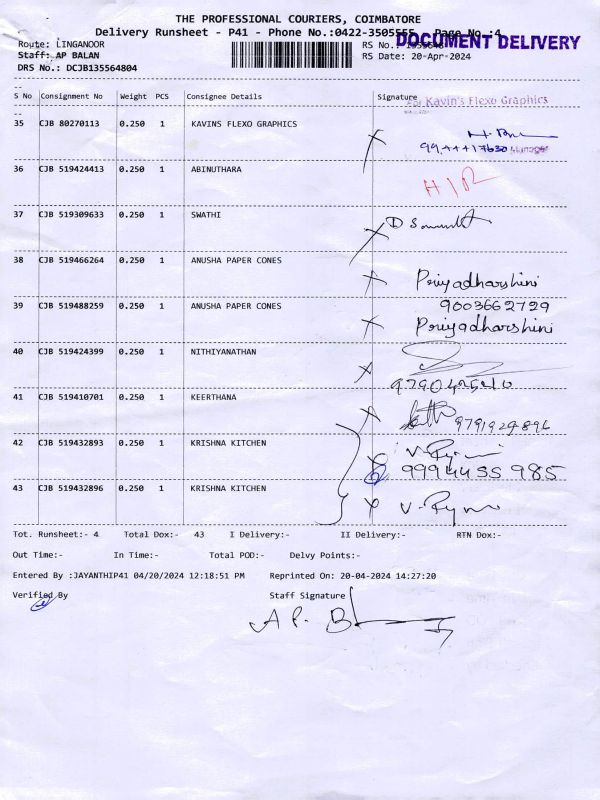 THE PROFESSIONAL COURIERS, COIMBATORE
Delivery Runsheet - P41 - Phone No.:0422-3505555 Page No.:4
DOCUMENT DELIVERY
Route: LINGANOOR RS No.:
Staff: AP BALAN RS Date: 20-Apr-2024
DRS No.: DCJB135564804
S No Consignment No Weight PCS Consignee Details Signature
Kavin's Flexo Graphics
35 CJB 80270113 0.250 1 KAVINS FLEXO GRAPHICS
Manager
36 CJB 519424413 0.250 1 ABINUTHARA
37 CJB 519309633 0.250 1 SWATHI
38 CJB 519466264 0.250 1 ANUSHA PAPER CONES Priyadharshini
9003662729
39 CJB 519488259 0.250 1 ANUSHA PAPER CONES Priyadharshini
40 CJB 519424399 0.250 1 NITHIYANATHAN
41 CJB 519410701 0.250 1 KEERTHANA
9791929896
42 CJB 519432893 0.250 1 KRISHNA KITCHEN
9994455985
43 CJB 519432896 0.250 1 KRISHNA KITCHEN
Tot. Runsheet:- 4 Total Dox:- 43 I Delivery:- II Delivery:- RTN Dox:-
Out Time:- In Time:- Total POD:- Delvy Points:-
Entered By :JAYANTHIP41 04/20/2024 12:18:51 PM Reprinted On: 20-04-2024 14:27:20
Verified By Staff Signature